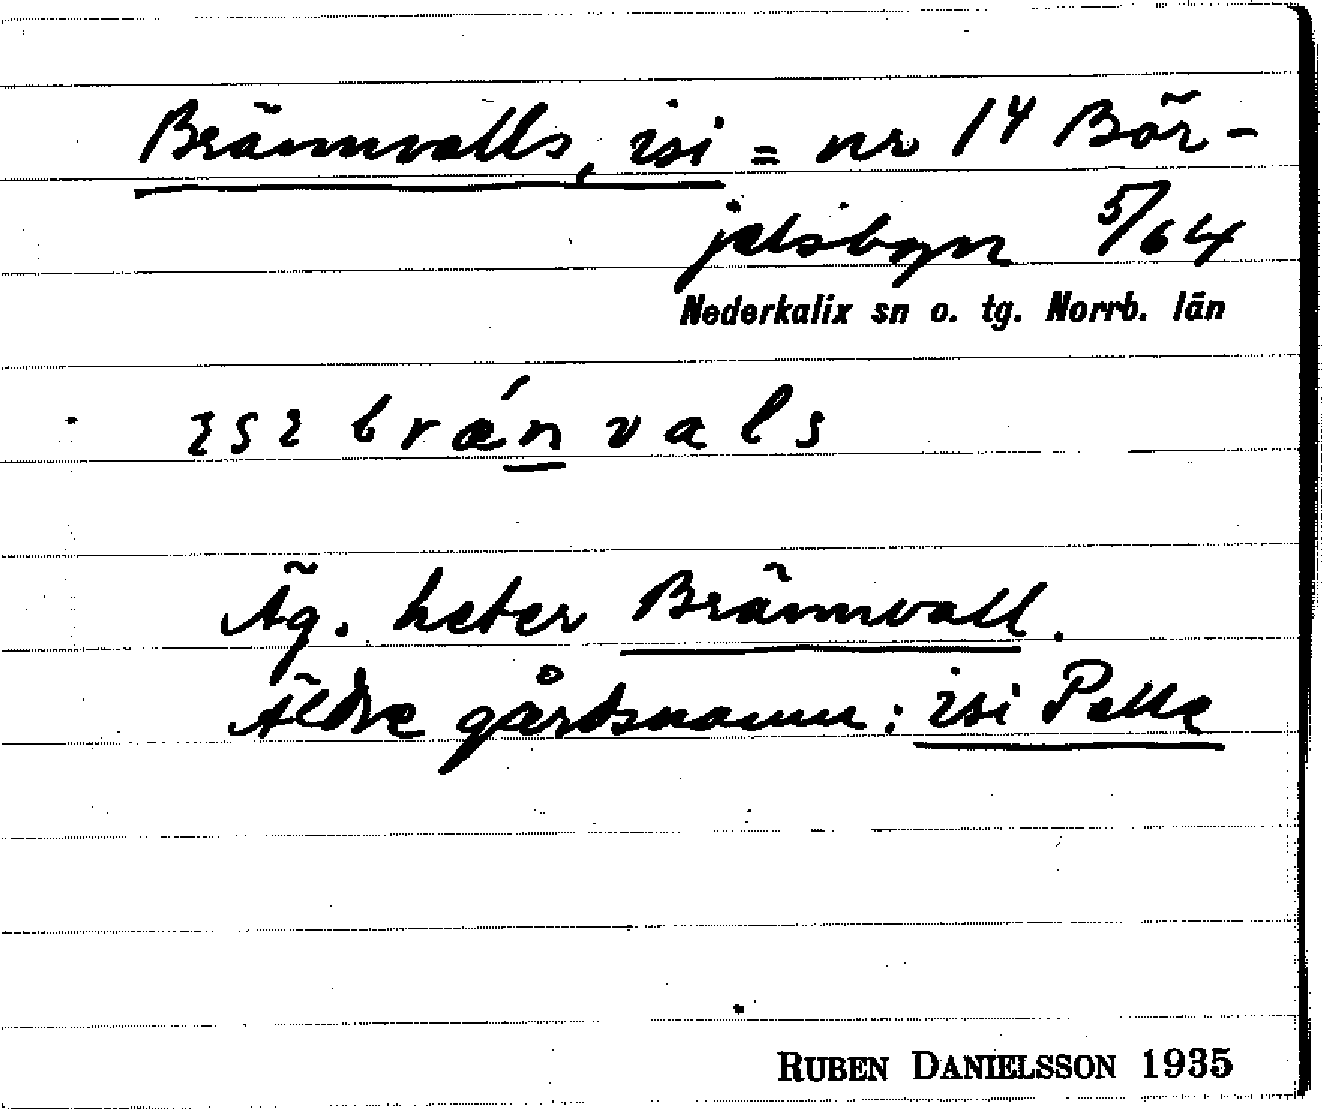 Brännvalls, isi = nr 14 Bör-
jelsbyn 5/64
Nederkalix sn o. tg. Norrb. län
ɩsɩ brǽn vals
Äg. heter Brännvall.
Äldre gårdsnamn: isi Pelle
RUBEN DANIELSSON 1935